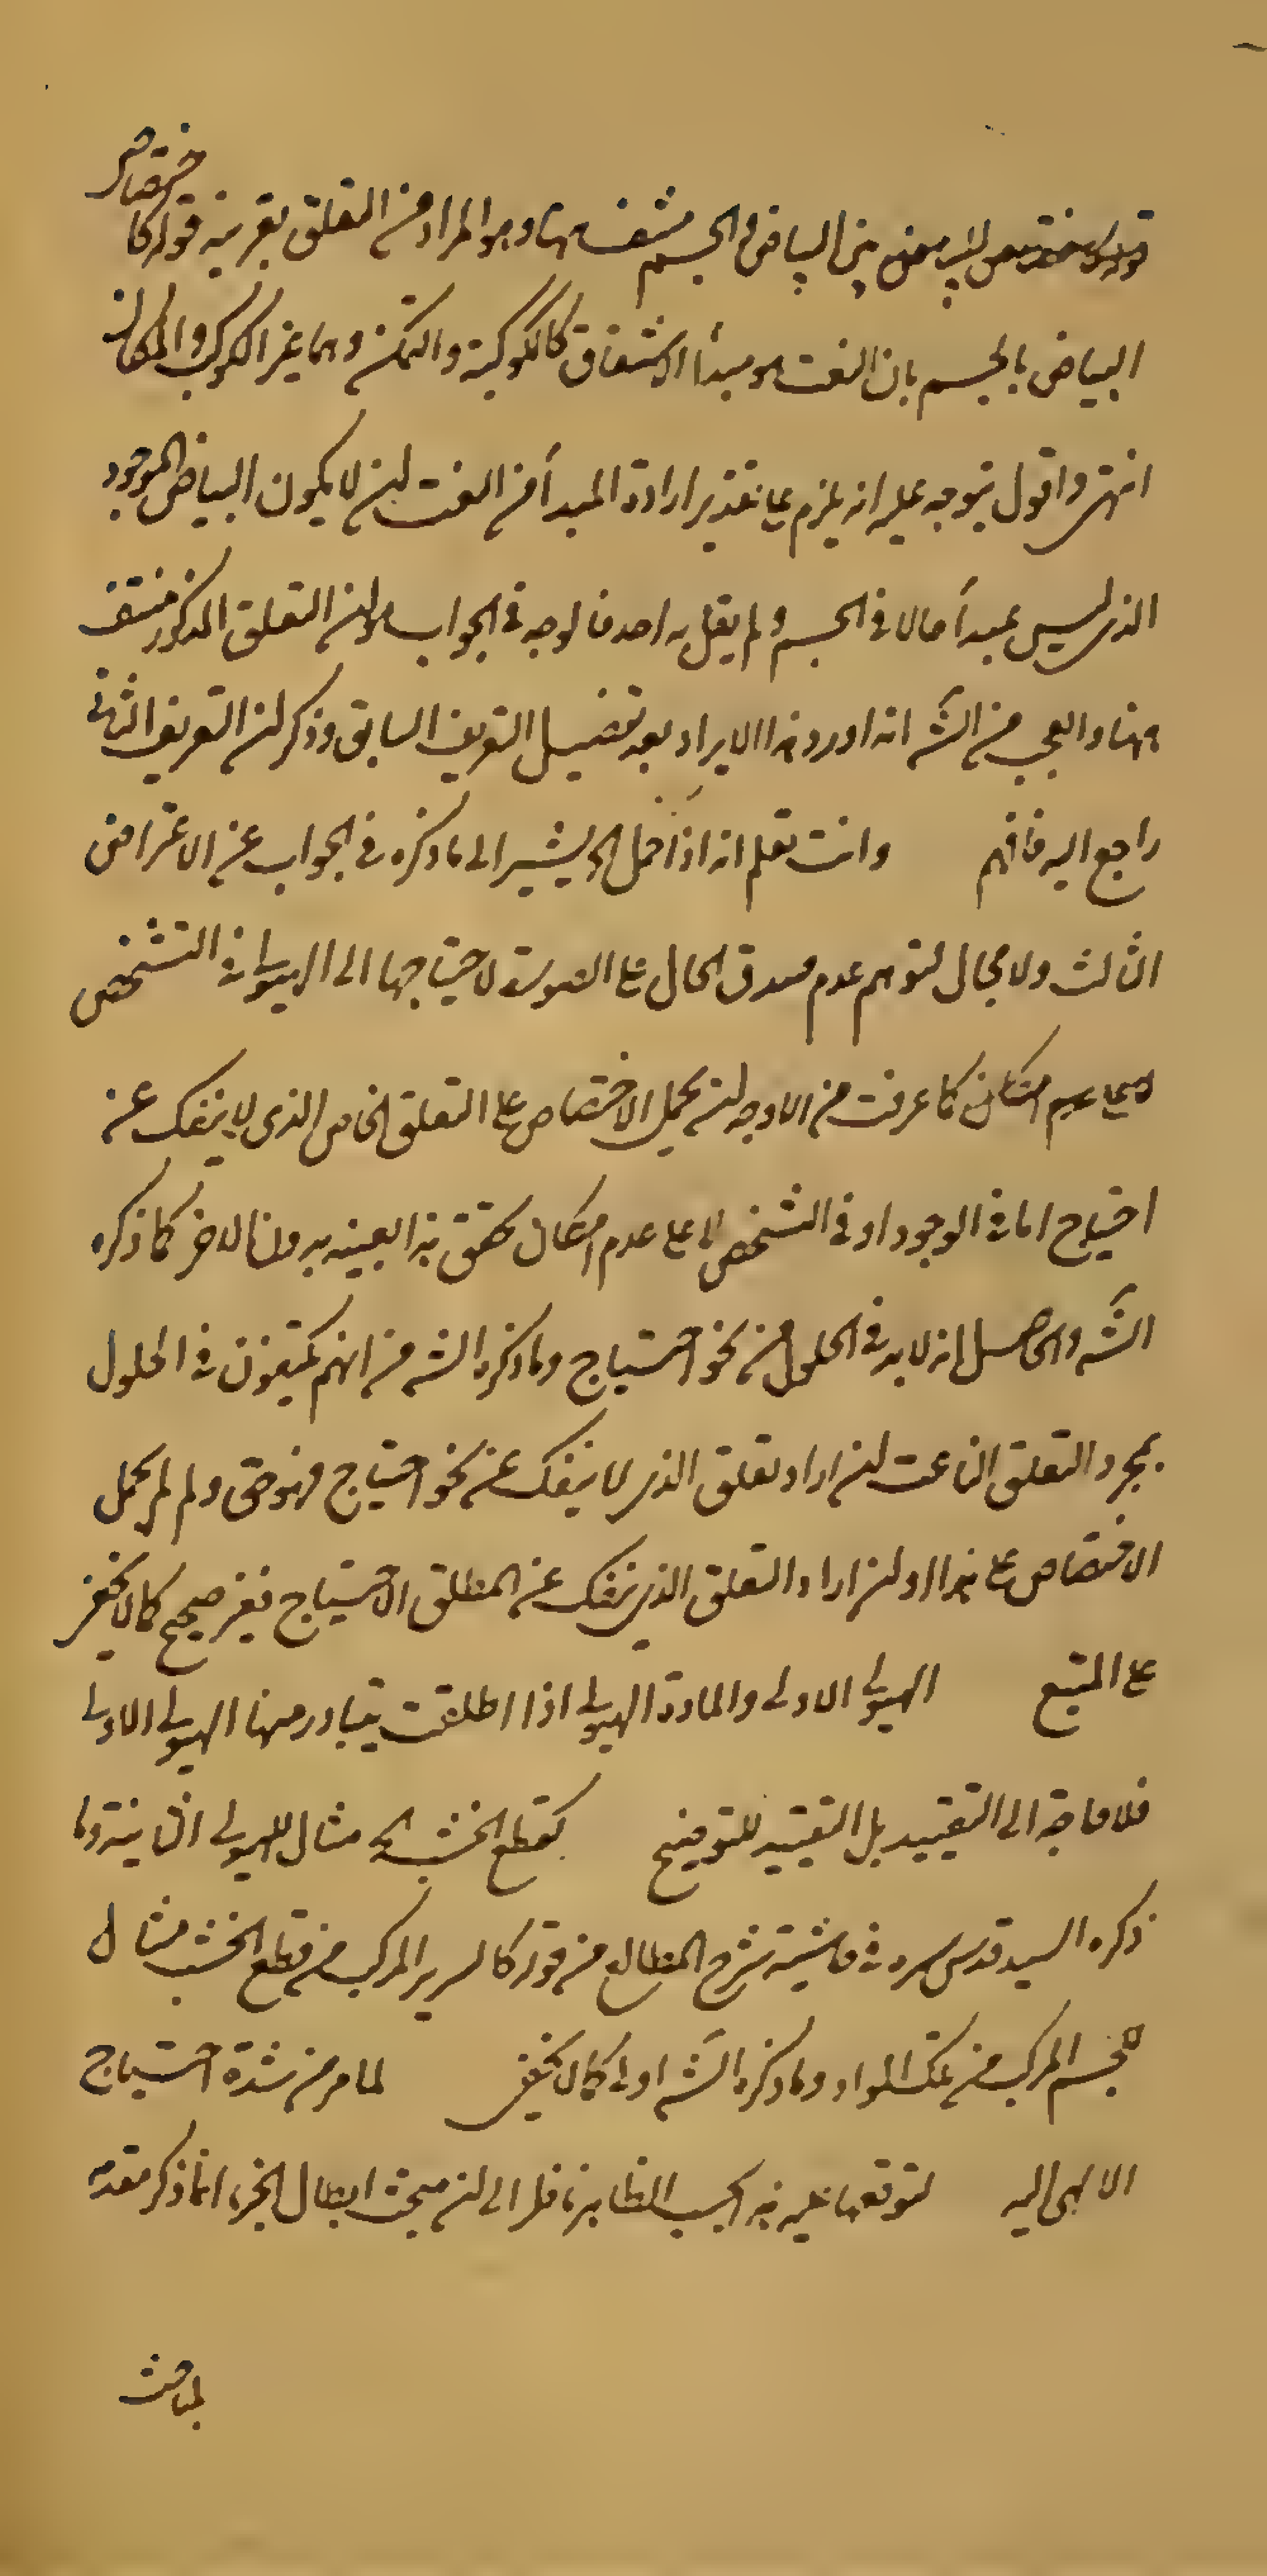 بين البياض والجسم منتف ههنا وهو المراد من التعلق بقرينة قوله كاختصاص
البياض بالجسم بان النعت هو مبدأ الاشتقاق كالكوكبية والتمكن وهما غير الكوكب والمكان
انتهى واقول يتوجه عليه انه يلزم على تقدير ارادة المبدأ من النعت ان لا يكون البياض الموجود
الذى ليس بمبدأ حالا فى الجسم ولم يقل به احد فالوجه فى الجواب هو ان التعلق المذكور منتف
ههنا والعجب من الشَه انه اورد هذا الايراد بعد تفصيل التعريف السابق وذكر ان التعريف الثانى
راجع اليه فافهم وانت تعلم انه اذا حمل الخ يشير الى ما ذكره فى الجواب عن الاعتراض
الثالث ولا مجال لتوهم عدم صدق الحال على الصورة لاحتياجها الى الهيولى فى التشخص
كما عرفت من الاوجه ان يحمل الاختصاص على التعلق الخاص الذى لا ينفك عن
احتياج اما فى الوجود او فى التشخص لا على عدم امكان تحقق هذا بعينه بدون الاخر كما ذكره
الشَه والحاصل انه لا بد فى الحلول من نحو احتياج وما ذكره الشه من انهم يكتفون فى الحلول
بمجرد التعلق الناعت ان اراد تعلق الذى لا ينفك عن نحو احتياج فهو حق ولم لم يحمل
الاختصاص على هذا او ان اراد التعلق الذى ينفك عن المطلق الاحتياج فغير صحيح كما لا يخفى
على المتتبع الهيولى الاولى والمادة الهيولى اذا اطلقت يتبادر منها الهيولى الاولى
فلا حاجة الى التقييد بل التقييد للتوضيح كقطع الخشب الخ مثال للهيولى الثانية وما
ذكره السيد قدس سره فى حاشية شرح المطالع من قوله كالسرير المركب من قطع الخشب مثال
للجسم المركب من تلك المواد وما ذكره الشَه اولى كما لا يخفى لما مر من شدة احتياج
الالهى اليه لتوقفها عليه هذا بحسب الظاهر نظرا الى ان مبحث ابطال الجزء انما ذكر مقدمة
لمباحث